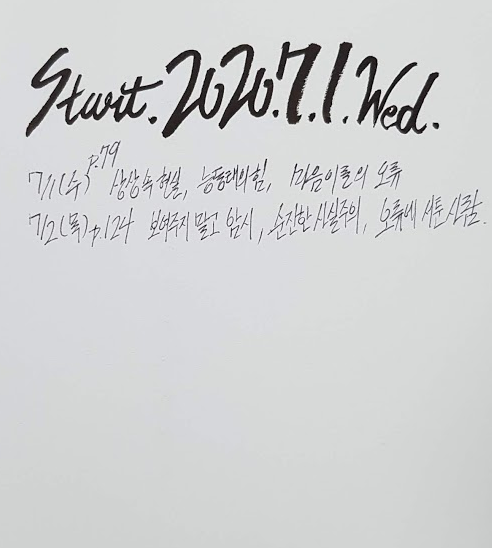 Start. 2020.7.1. Wed.
7/1(수) p.79 상상 속 현실, 능동태의 힘, 마음이론의 오류
7/2(목) p.124 보여주지 말고 암시, 순진한 사실주의, 오류에 서툰 사람.